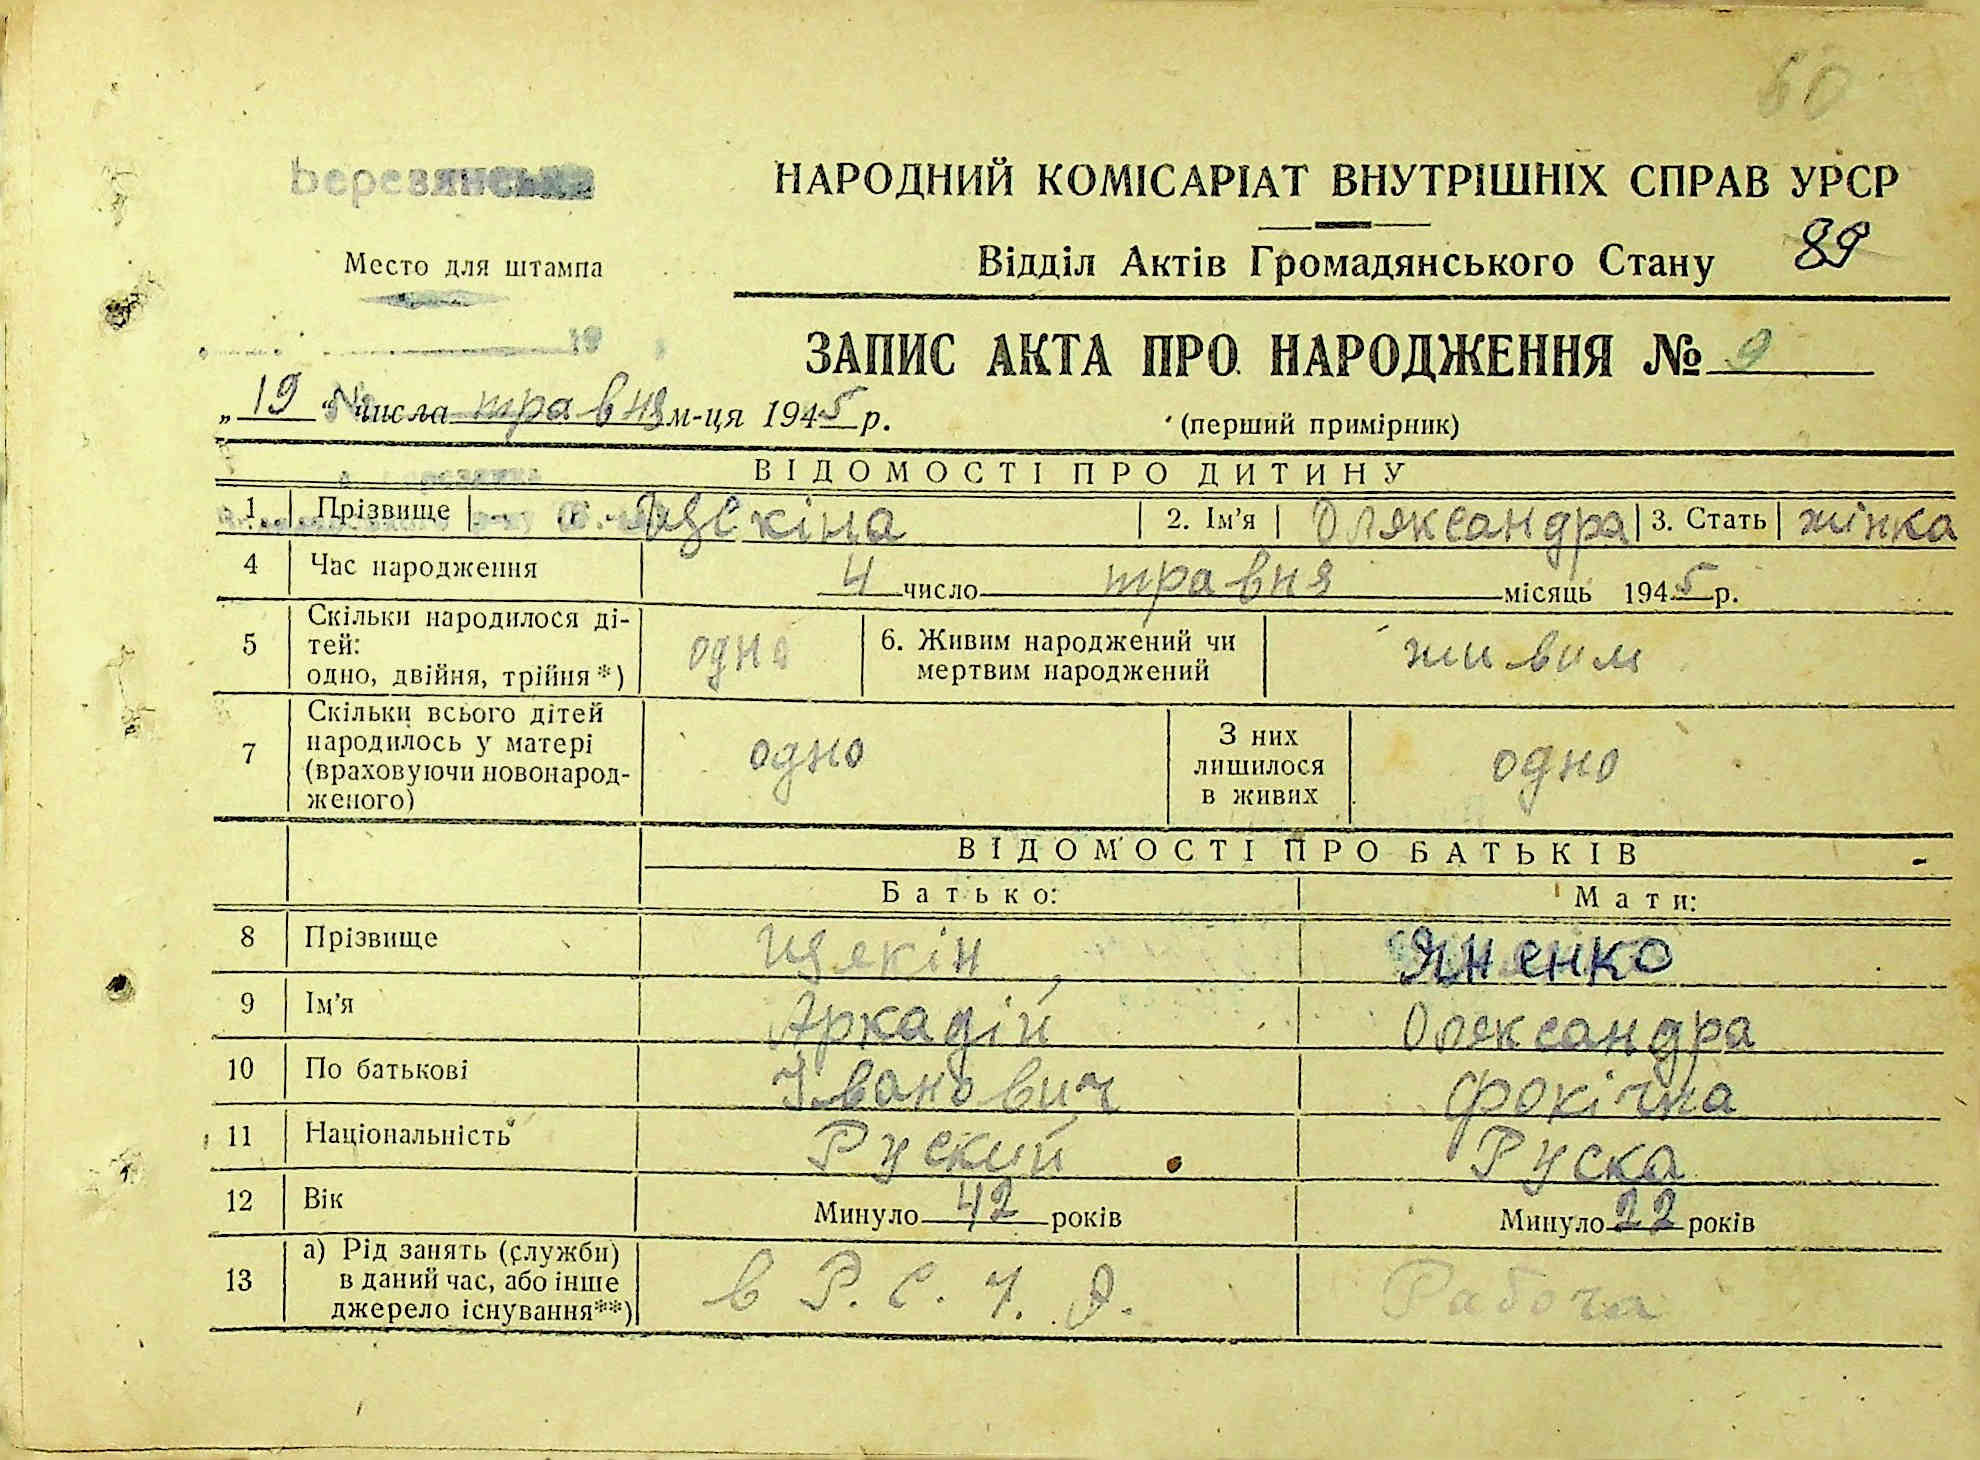 60
Березянська
НАРОДНИЙ КОМІСАРІАТ ВНУТРІШНІХ СПРАВ УРСР
Место для штампа
Відділ Актів Громадянського Стану 89
19
ЗАПИС АКТА ПРО НАРОДЖЕННЯ № 9
„19“ числа травня м-ця 1945 р.
(перший примірник)
ВІДОМОСТІ ПРО ДИТИНУ
1 Прізвище 2. Ім’я Олександра 3. Стать жінка
4 Час народження 4 число травня місяць 1945 р.
5 Скільки народилося ді-
тей:
одно, двійня, трійня*) одно 6. Живим народжений чи
мертвим народжений живим
7 Скільки всього дітей
народилось у матері
(враховуючи новонарод-
женого) одно З них
лишилося
в живих одно
ВІДОМОСТІ ПРО БАТЬКІВ
Батько: Мати:
8 Прізвище Яненко
9 Ім’я Аркадій Олександра
10 По батькові Іванович Фокічна
11 Національність Руский Руска
12 Вік Минуло 42 років Минуло 22 років
13 а) Рід занять (служби)
в даний час, або інше
джерело існування**) в Р. С. Ч. А. Рабоча